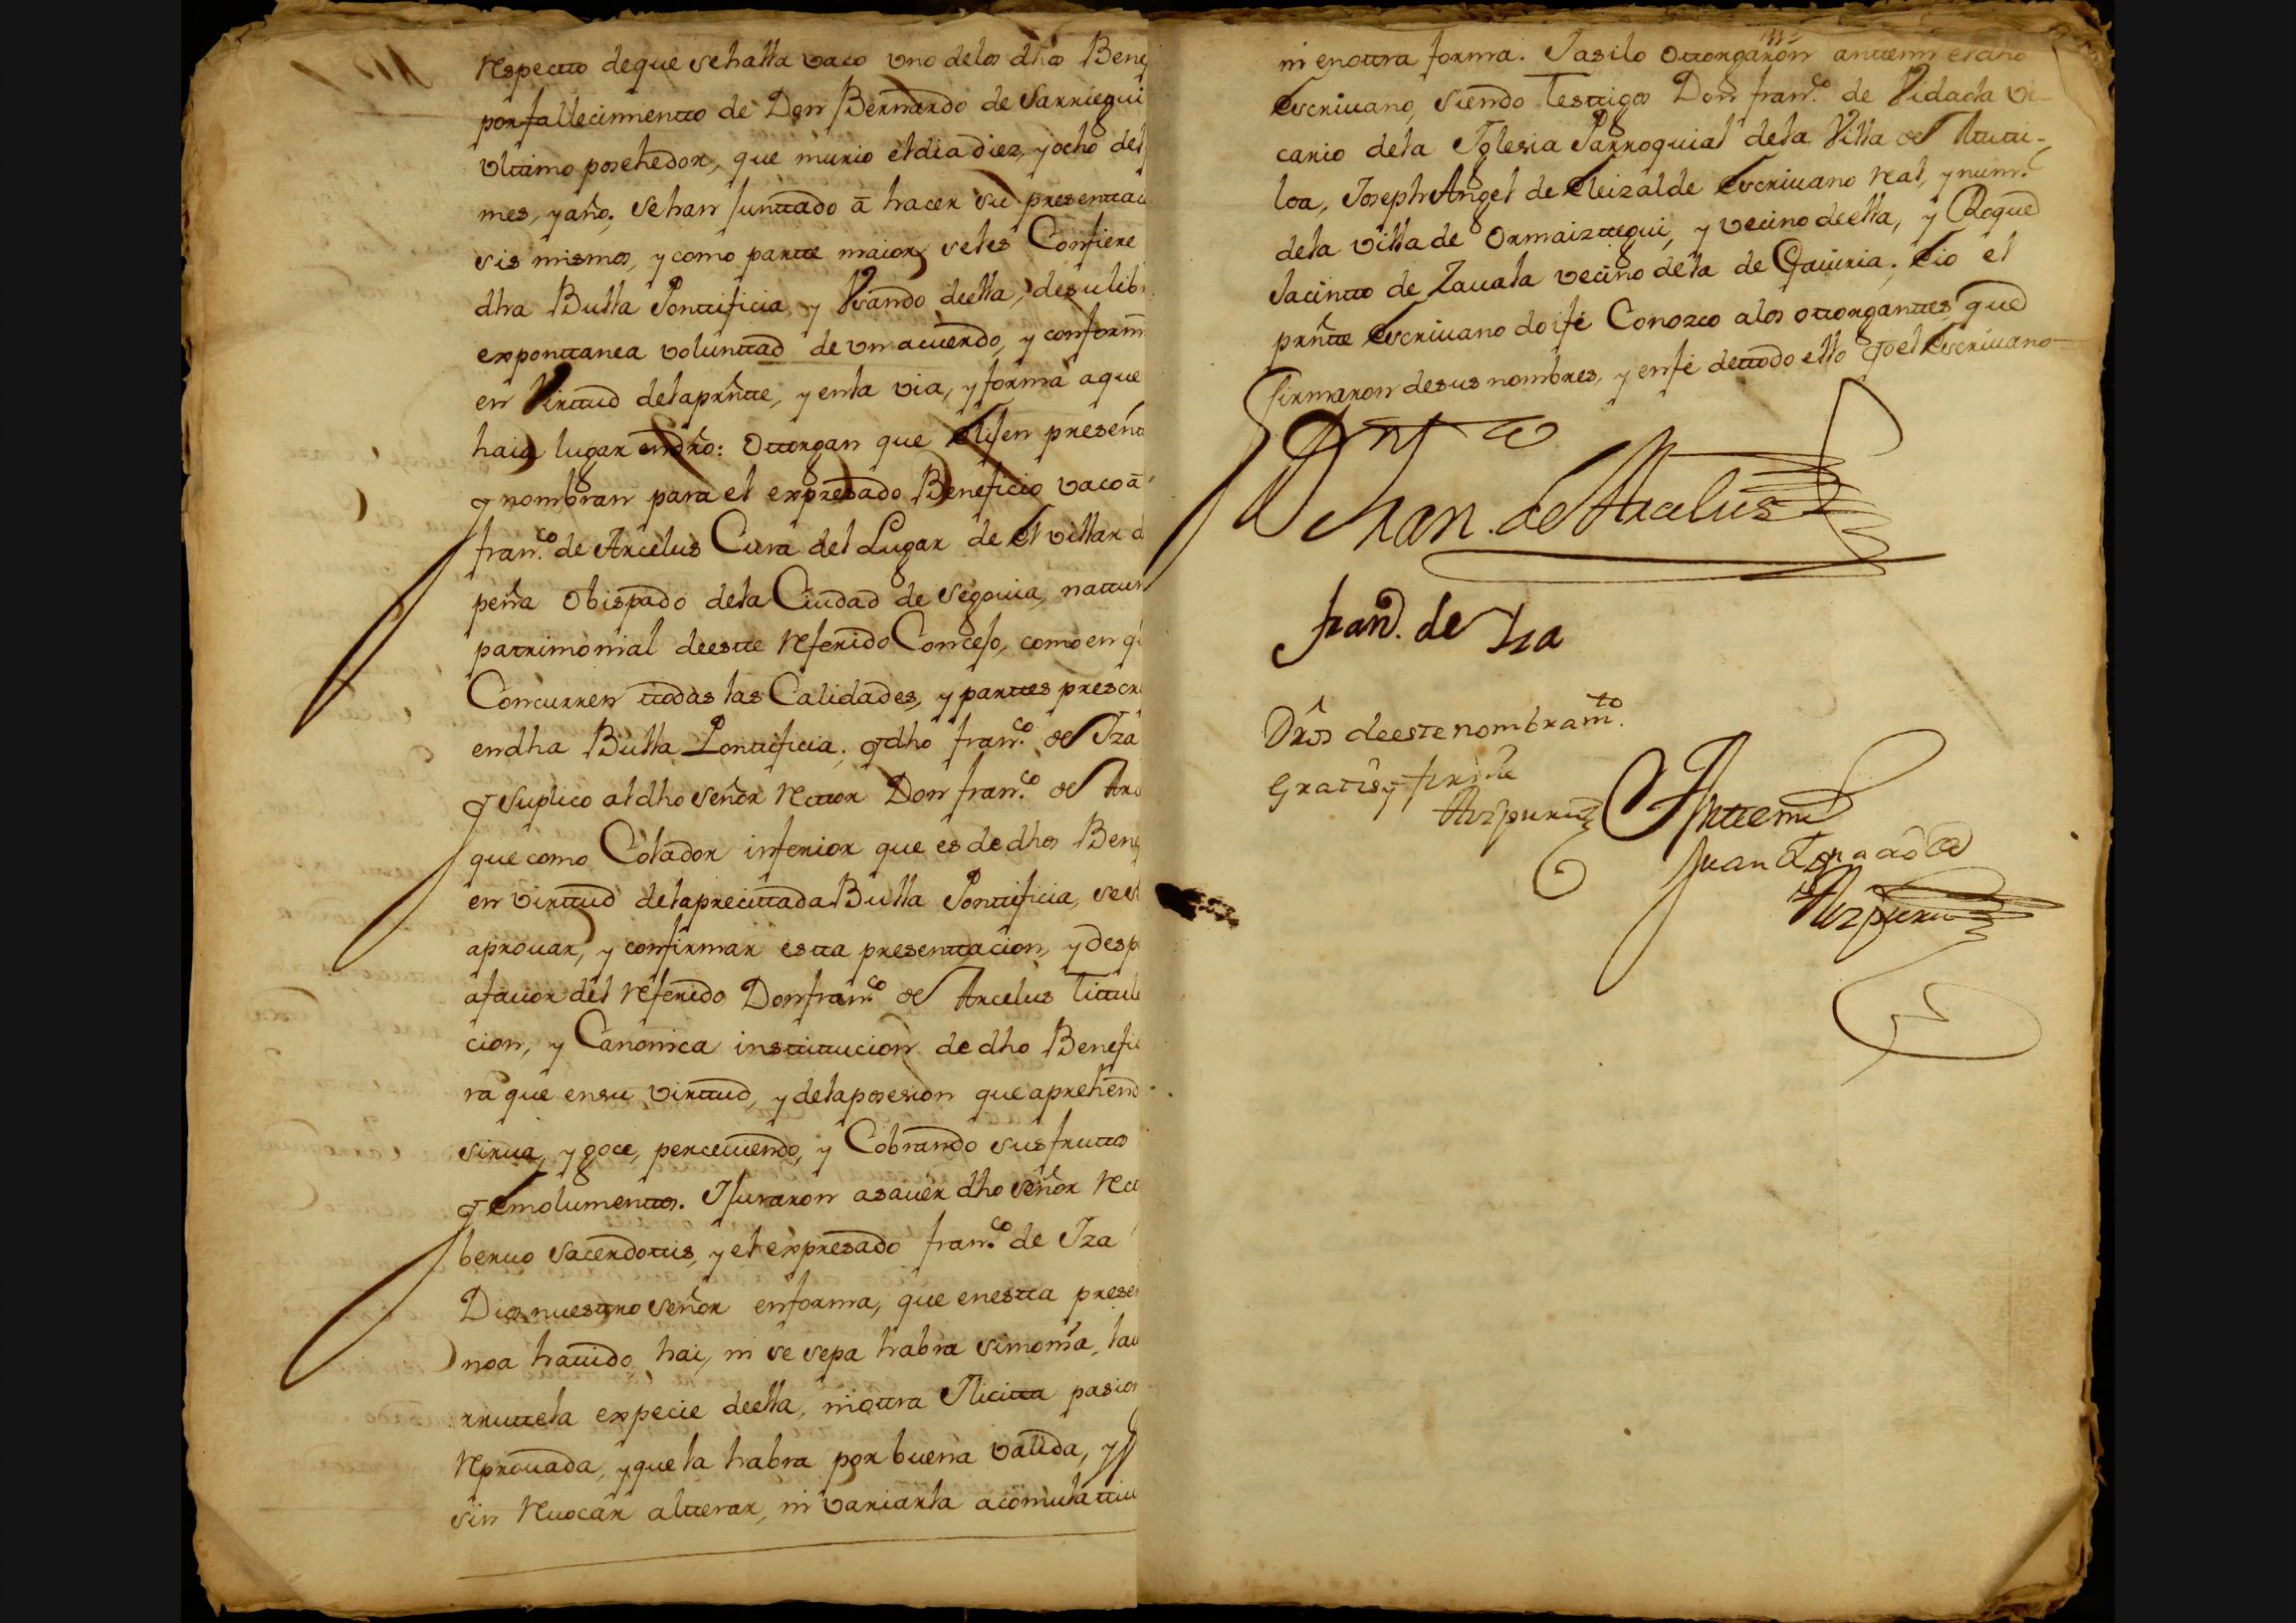 respecto deque sehalla vaco vno delos dhõs Bene
porfallecimientto de Don Bernardo de Sarriegui
vltimo posehedor, que murio eldia diez, y ocho del
mes, y año. sehan Junttado à hacer su presenttac
sis mismos, y como partte maior seles Confiere
dha Bulla Ponttificia y Vsando deella, desulib
exponttanea volunttad de vn acuerdo, y conform
en Virttud delaprñtte, y enla via, y forma aque
haia lugar endrõ: Ottorgan que elijen presen
y nombran para el expresado Beneficio vaco à
fran.co de Arcelus Cura del Lugar de el villar d
peña Obispado dela Ciudad de Segouia, nattur
patrimonial deestte referido Concejo, como en q
Concurren ttodas las Calidades, y parttes prescr
endha Bulla Ponttificia; y dho fran.co de Iza
y suplico aldho Señor Rettor Don fran.co de Arc
que como Colador inferior que es de dhos Bene
en virttud delaprecittada Bulla Ponttificia, se
aprouar, y confirmar estta presenttacion, y desp
afauor del referido Donfran.co de Arcelus Tittul
cion, y Canonica insttittucion de dho Benefi
ra que ensu virttud, y delaposesion que aprehend
sirua, y goce, perceuiendo, y Cobrando susfruttos
y emolumenttos. I Juraron asauer dho Señor Re
beruo Sacerdottis, y el expresado fran.co de Iza
Dios nuesttro Señor enforma, que enestta prese
noa hauido, hai, ni se sepa habra simonia,
rruttela expecie deella, ni ottra Ilicitta pasion
reprouada, y que la habra por buena valida, y
sin reuocar altterar, ni variarla acomulattiu
ni enottra forma. Iasilo ottorgaron anttemi eldho
escriuano, siendo Testtigos Don fran.co de Vidaola vi-
cario dela Iglesia Parroquial dela Villa de Ataui-
loa, Joseph Angel de eleizalde escriuano real, y num.l
dela villa de Ormaizttegui, y vecino deella, y Roque
Jacintto de Zauala vecino dela de Gauiria; eio el
prñtte escriuano doifé Conozco alos ottorganttes, que
firmaron desus nombres, y enfé dettodo ello yo el escriuano
Dn fran. de Arcelus
fran.co de Iza
Drõs deeste nombram.to
Gratis y firmé
Aizpuru
Anttemi
Juan Ignacio de
Aizpuru